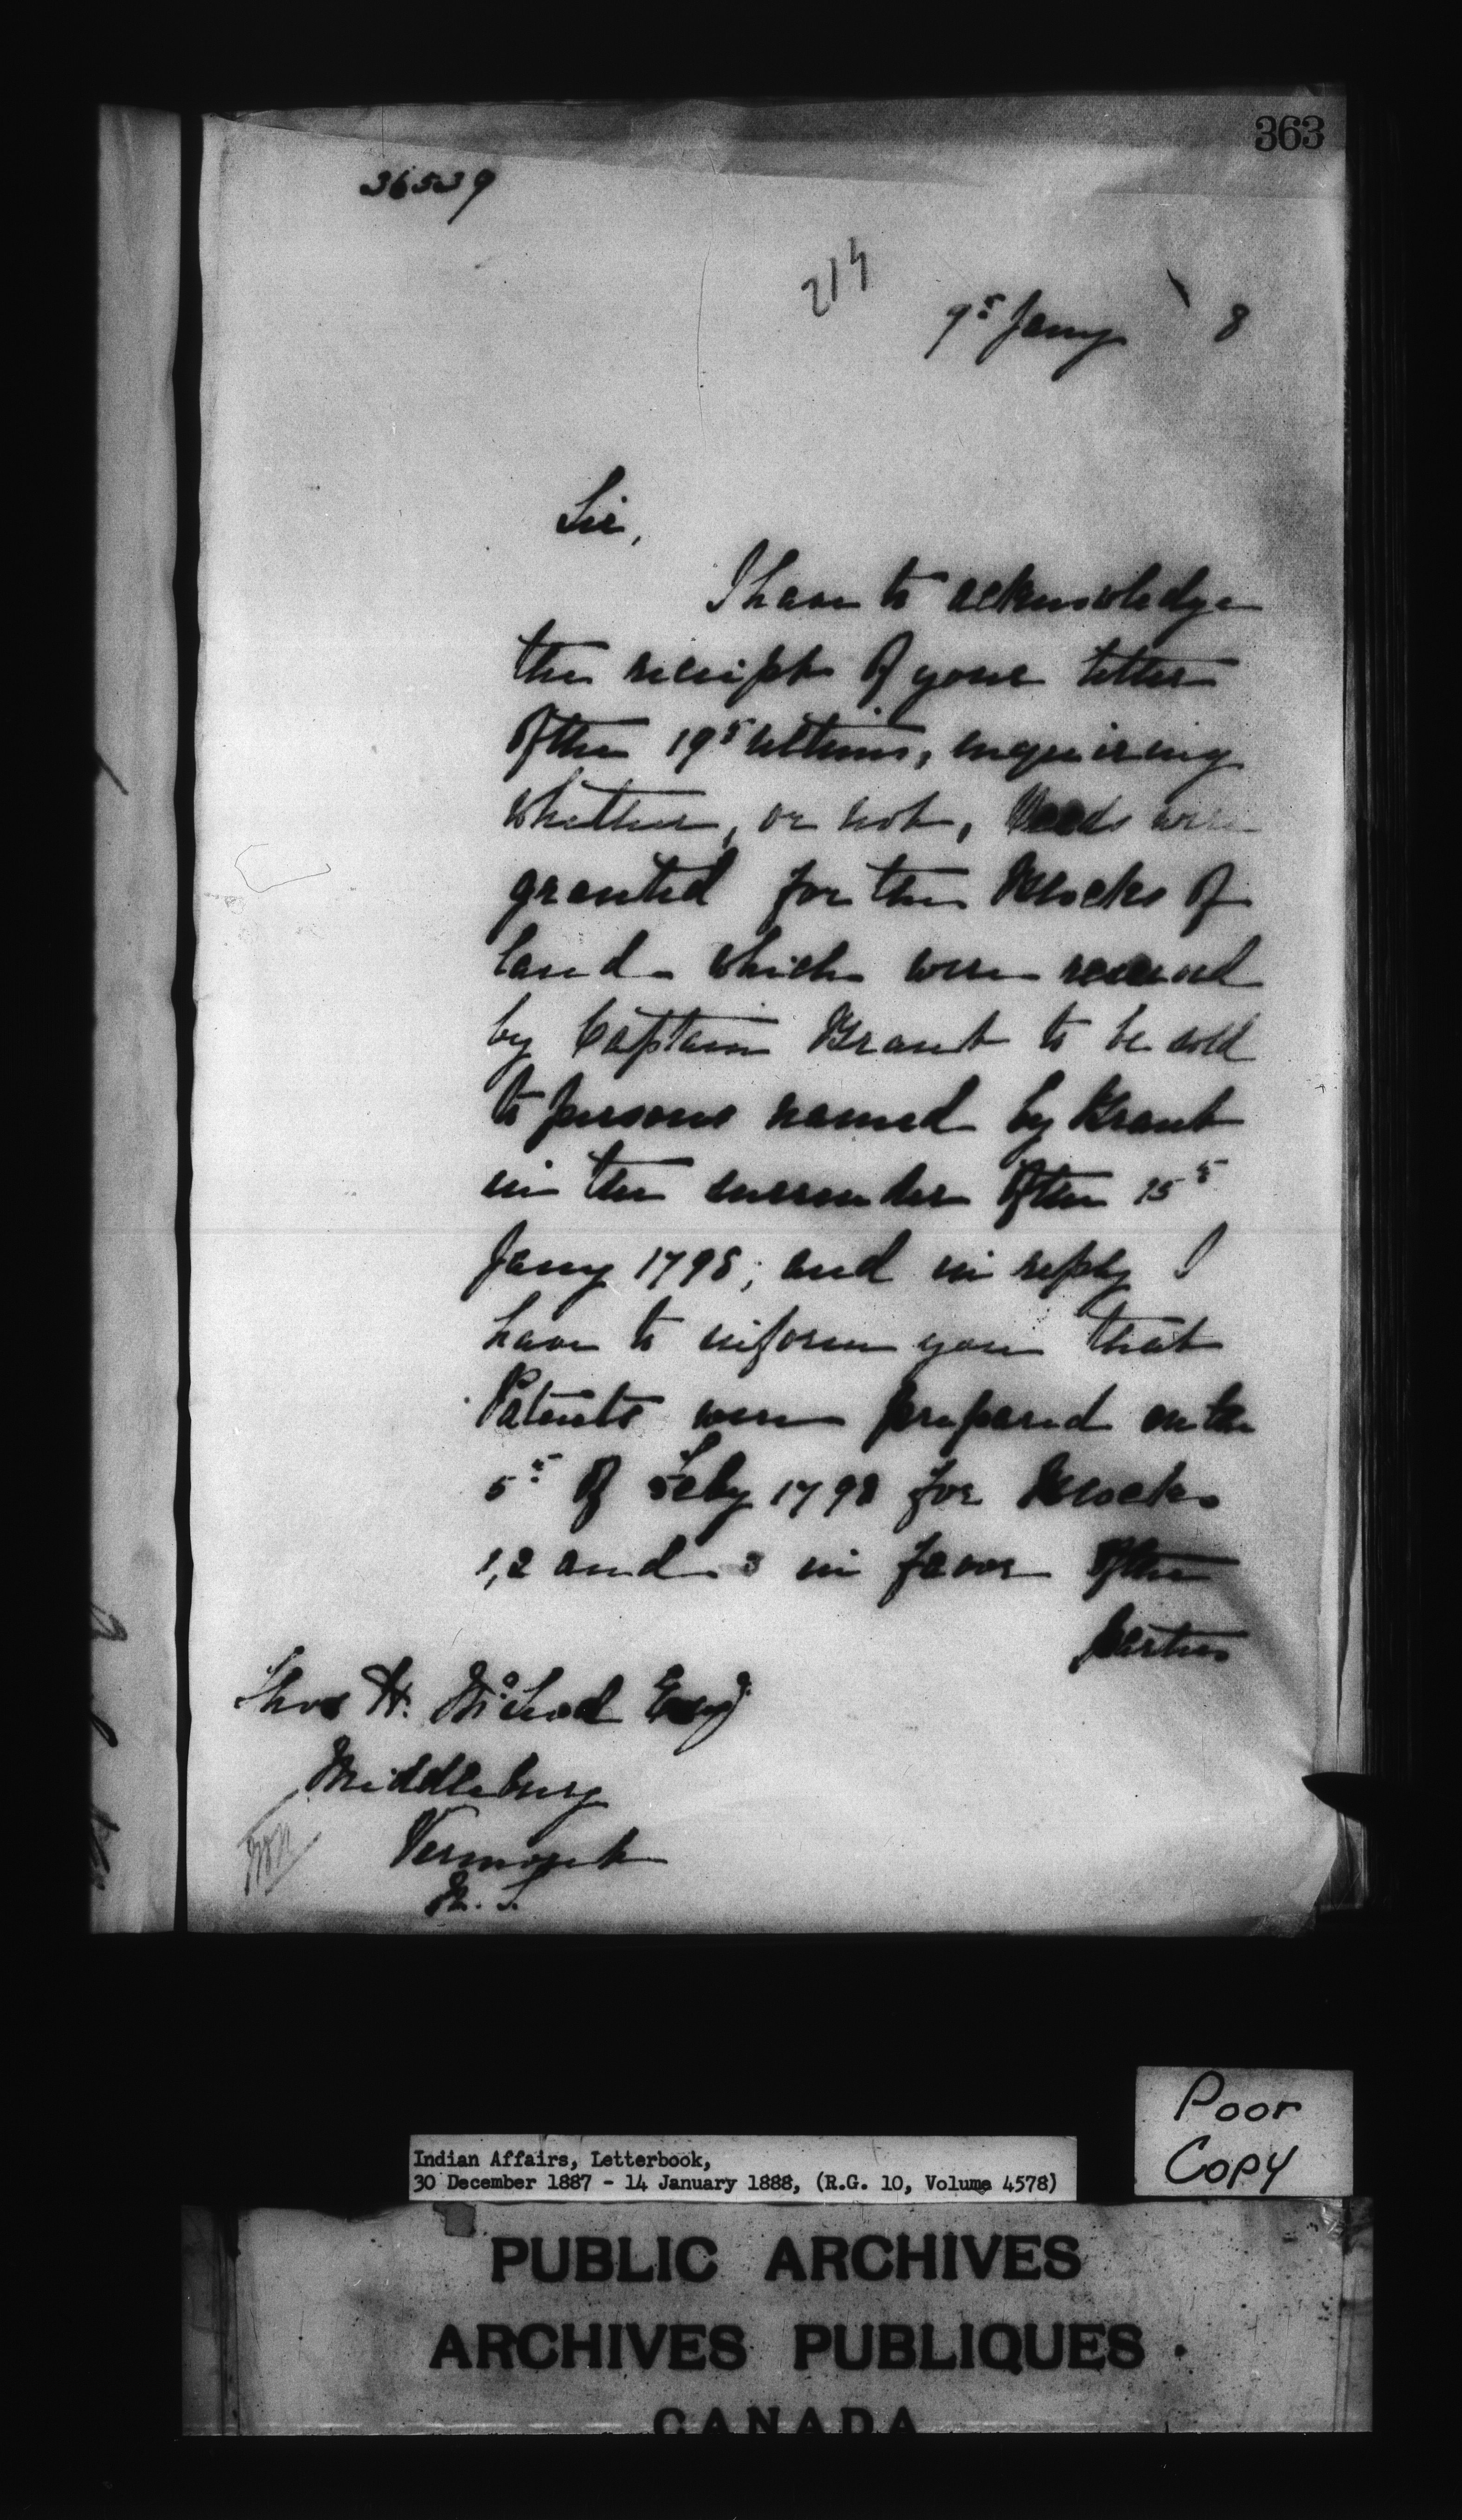 363
36539
214
9th Jany 8
Sir,
I have to acknowledge
the receipt of your letter
of the 19th ultimo, inquiring
whether, or not, Deeds were
granted for the Blocks of
land which were
by Captain Brant to be sold
to persons named by Brant
in the surrender of the 15th
Jany 1798; and in reply I
have to inform you that
Patents were prepared on the
5th of Feby 1798 for Blocks
1, 2 and 3 in favor of the
parties
Thos H. McLeod Esq
Middlebury
Vermont
Poor
Copy
Indian Affairs, Letterbook,
30 December 1887 - 14 January 1888, (R.G. 10, Volume 4578)
PUBLIC ARCHIVES
ARCHIVES PUBLIQUES
CANADA